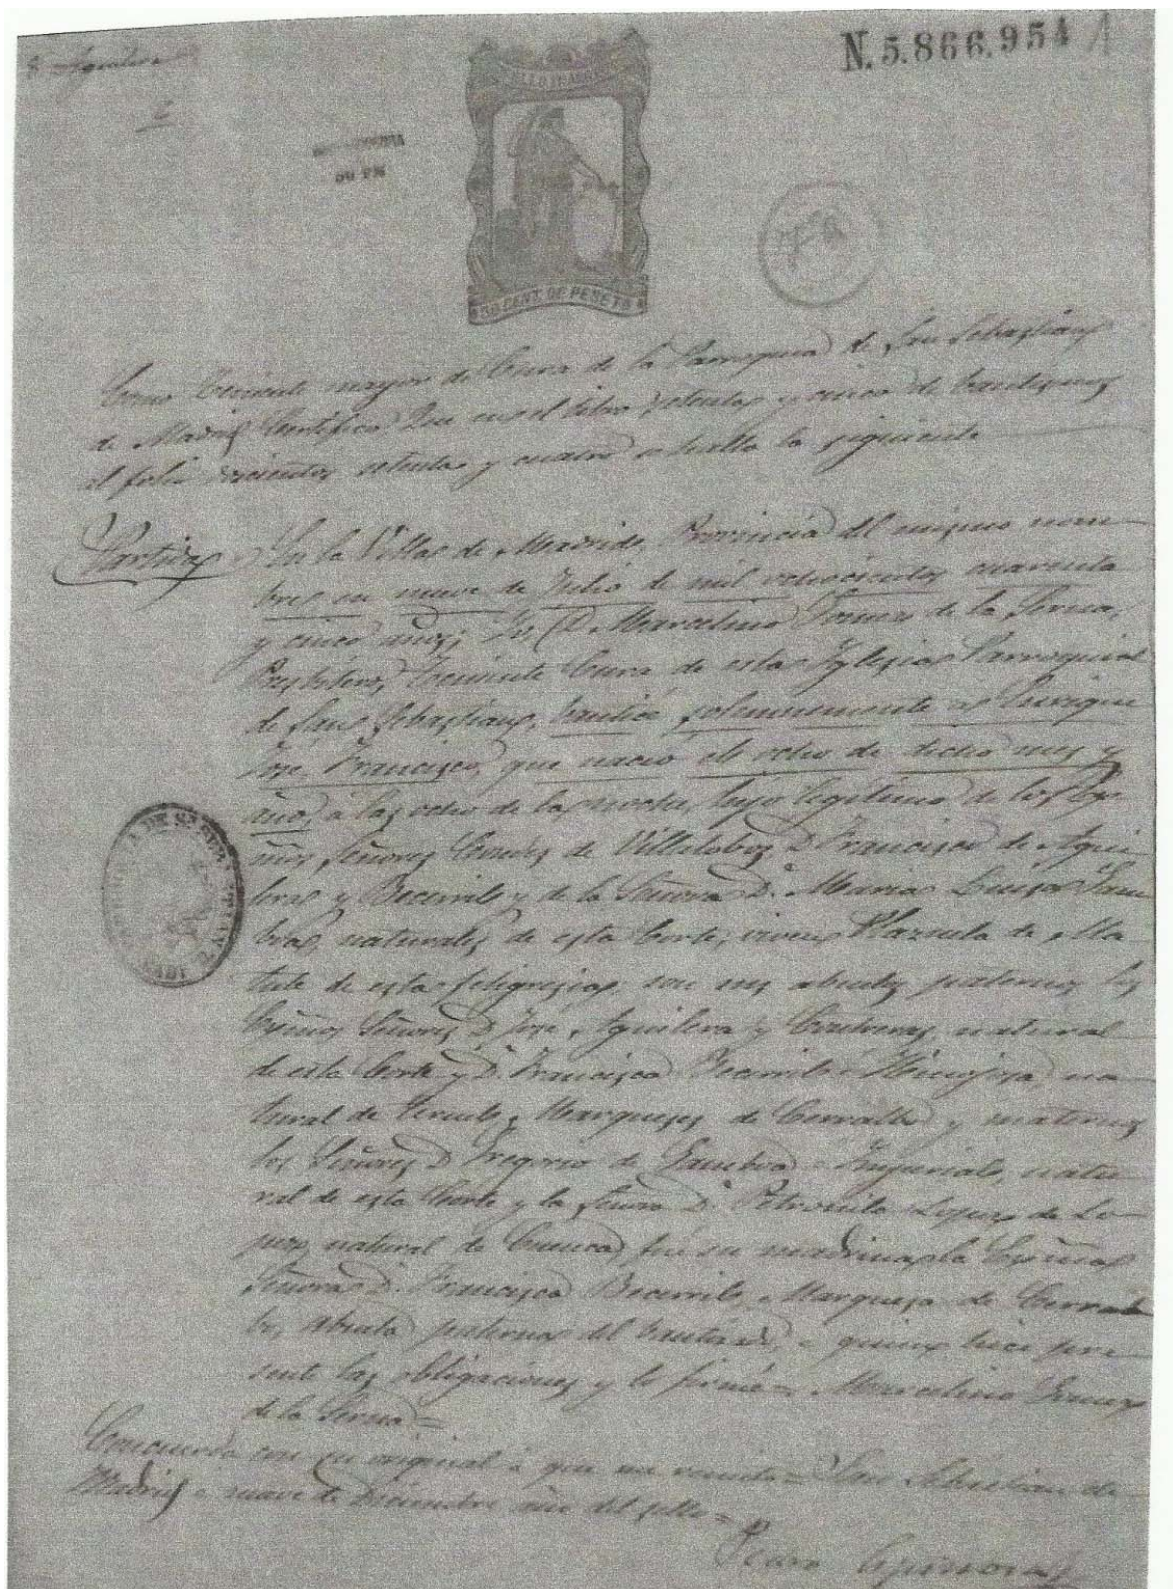 N. 5.866.954
50 CENT. DE PESETA
Como Teniente mayor de Cura de la Parroquia de San Sebastian
de Madrid Certifico: Que en el libro setenta y cinco de bautismos
al folio setenta y cuatro se halla la siguiente
Partida
En la Villa de Madrid, Provincia del mismo nom-
bre en nueve de Julio de mil ochocientos cuarenta
y cinco años; Yo D. Marcelino Gomez de la Serna,
Presbitero, Teniente Cura de esta Iglesia Parroquial
de San Sebastian, bauticé solemnemente a Enrique
José Francisco, que nació el ocho de dicho mes y
año, a las ocho de la noche, hijo legitimo de los Exc
mos Señores Condes de Villalobos D. Francisco de Agui
lera y Becerril y de la Señora Dª Maria Luisa Gam
boa, naturales de esta Corte, viven Plazuela de Ma
tute de esta feligresia, son sus abuelos paternos los
Exmos Señores D. José Aguilera y Contreras, natural
de esta Corte y Dª Francisca Becerril é Hinojosa na
tural de Marqueses de Cerralbo y maternos
los Señores D. Gregorio de Gamboa natu
ral de esta Corte y la Señora Dª Petronila Lopez de Lo-
pez, natural de Cuenca, fué su madrina la Exma
Señora Dª Francisca Becerril, Marquesa de Cerral
bo, abuela paterna del bautizado, a quien hice pre
sente las obligaciones y lo firmé = Marcelino Gomez
de la Serna =
Concuerda con su original á que me remito = San Sebastian de
Madrid a nueve de Diciembre año del sello =